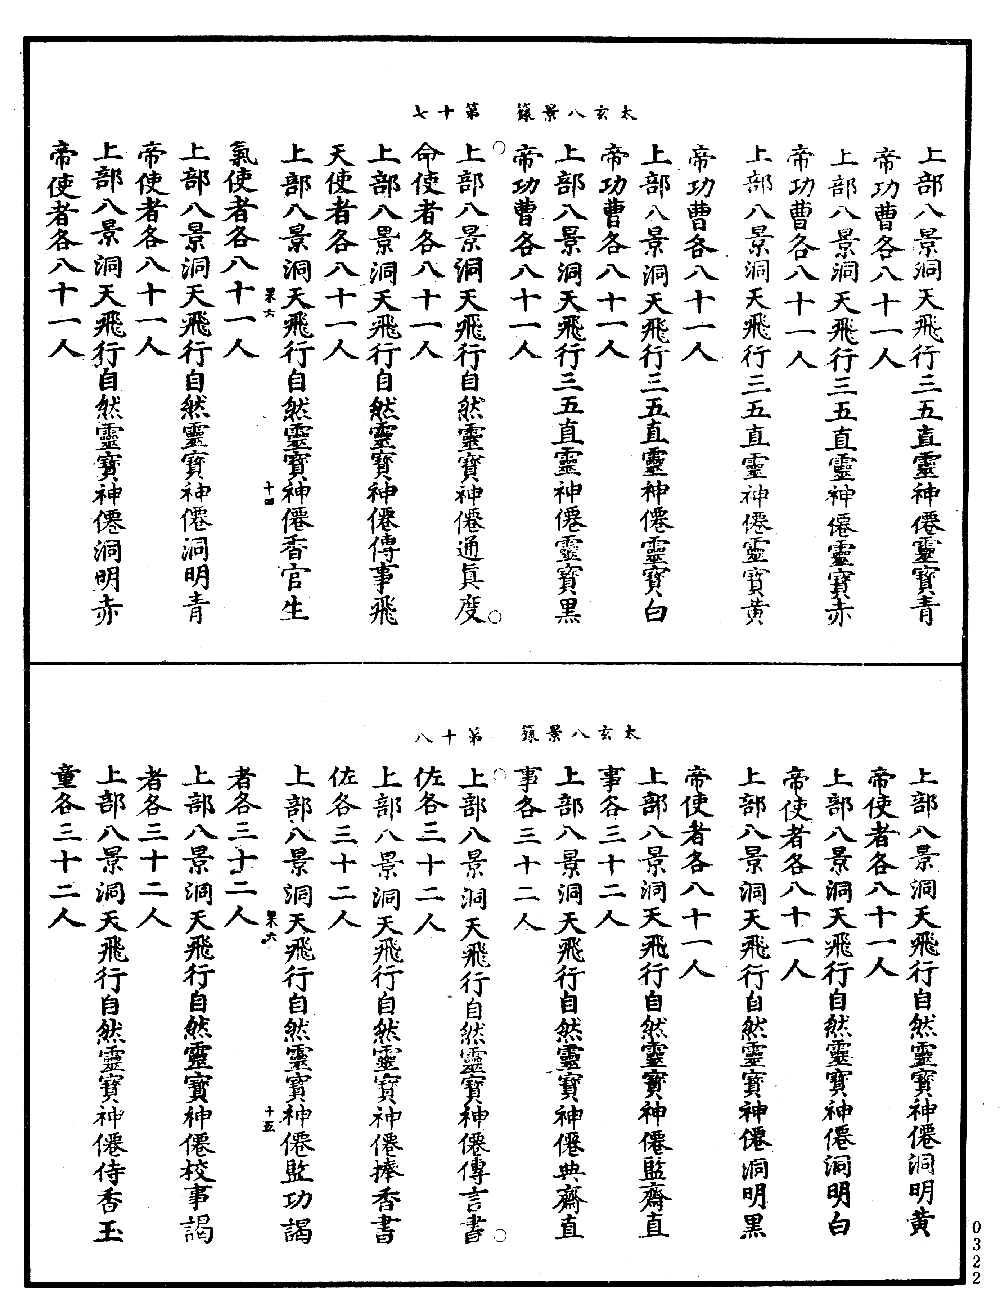 太玄八景籙　第十七
上部八景洞天飛行三五直靈神僊靈寶青
帝功曹各八十一人
上部八景洞天飛行三五直靈神僊靈寶赤
帝功曹各八十一人
上部八景洞天飛行三五直靈神僊靈寶黄
帝功曹各八十一人
上部八景洞天飛行三五直靈神僊靈寶白
帝功曹各八十一人
上部八景洞天飛行三五直靈神僊靈寶黑
帝功曹各八十一人
上部八景洞天飛行自然靈寶神僊通真度
命使者各八十一人
上部八景洞天飛行自然靈寶神僊傳事飛
天使者各八十一人
上部八景洞天飛行自然靈寶神僊香官生
果六　十四
氣使者各八十一人
上部八景洞天飛行自然靈寶神僊洞明青
帝使者各八十一人
上部八景洞天飛行自然靈寶神僊洞明赤
帝使者各八十一人
太玄八景籙　第十八
上部八景洞天飛行自然靈寶神僊洞明黄
帝使者各八十一人
上部八景洞天飛行自然靈寶神僊洞明白
帝使者各八十一人
上部八景洞天飛行自然靈寶神僊洞明黑
帝使者各八十一人
上部八景洞天飛行自然靈寶神僊監齋直
事各三十二人
上部八景洞天飛行自然靈寶神僊典齋直
事各三十二人
上部八景洞天飛行自然靈寶神僊傳言書
佐各三十二人
上部八景洞天飛行自然靈寶神僊捧香書
佐各三十二人
上部八景洞天飛行自然靈寶神僊監功謁
果六　十五
者各三十二人
上部八景洞天飛行自然靈寶神僊校事謁
者各三十二人
上部八景洞天飛行自然靈寶神僊侍香玉
童各三十二人
0322